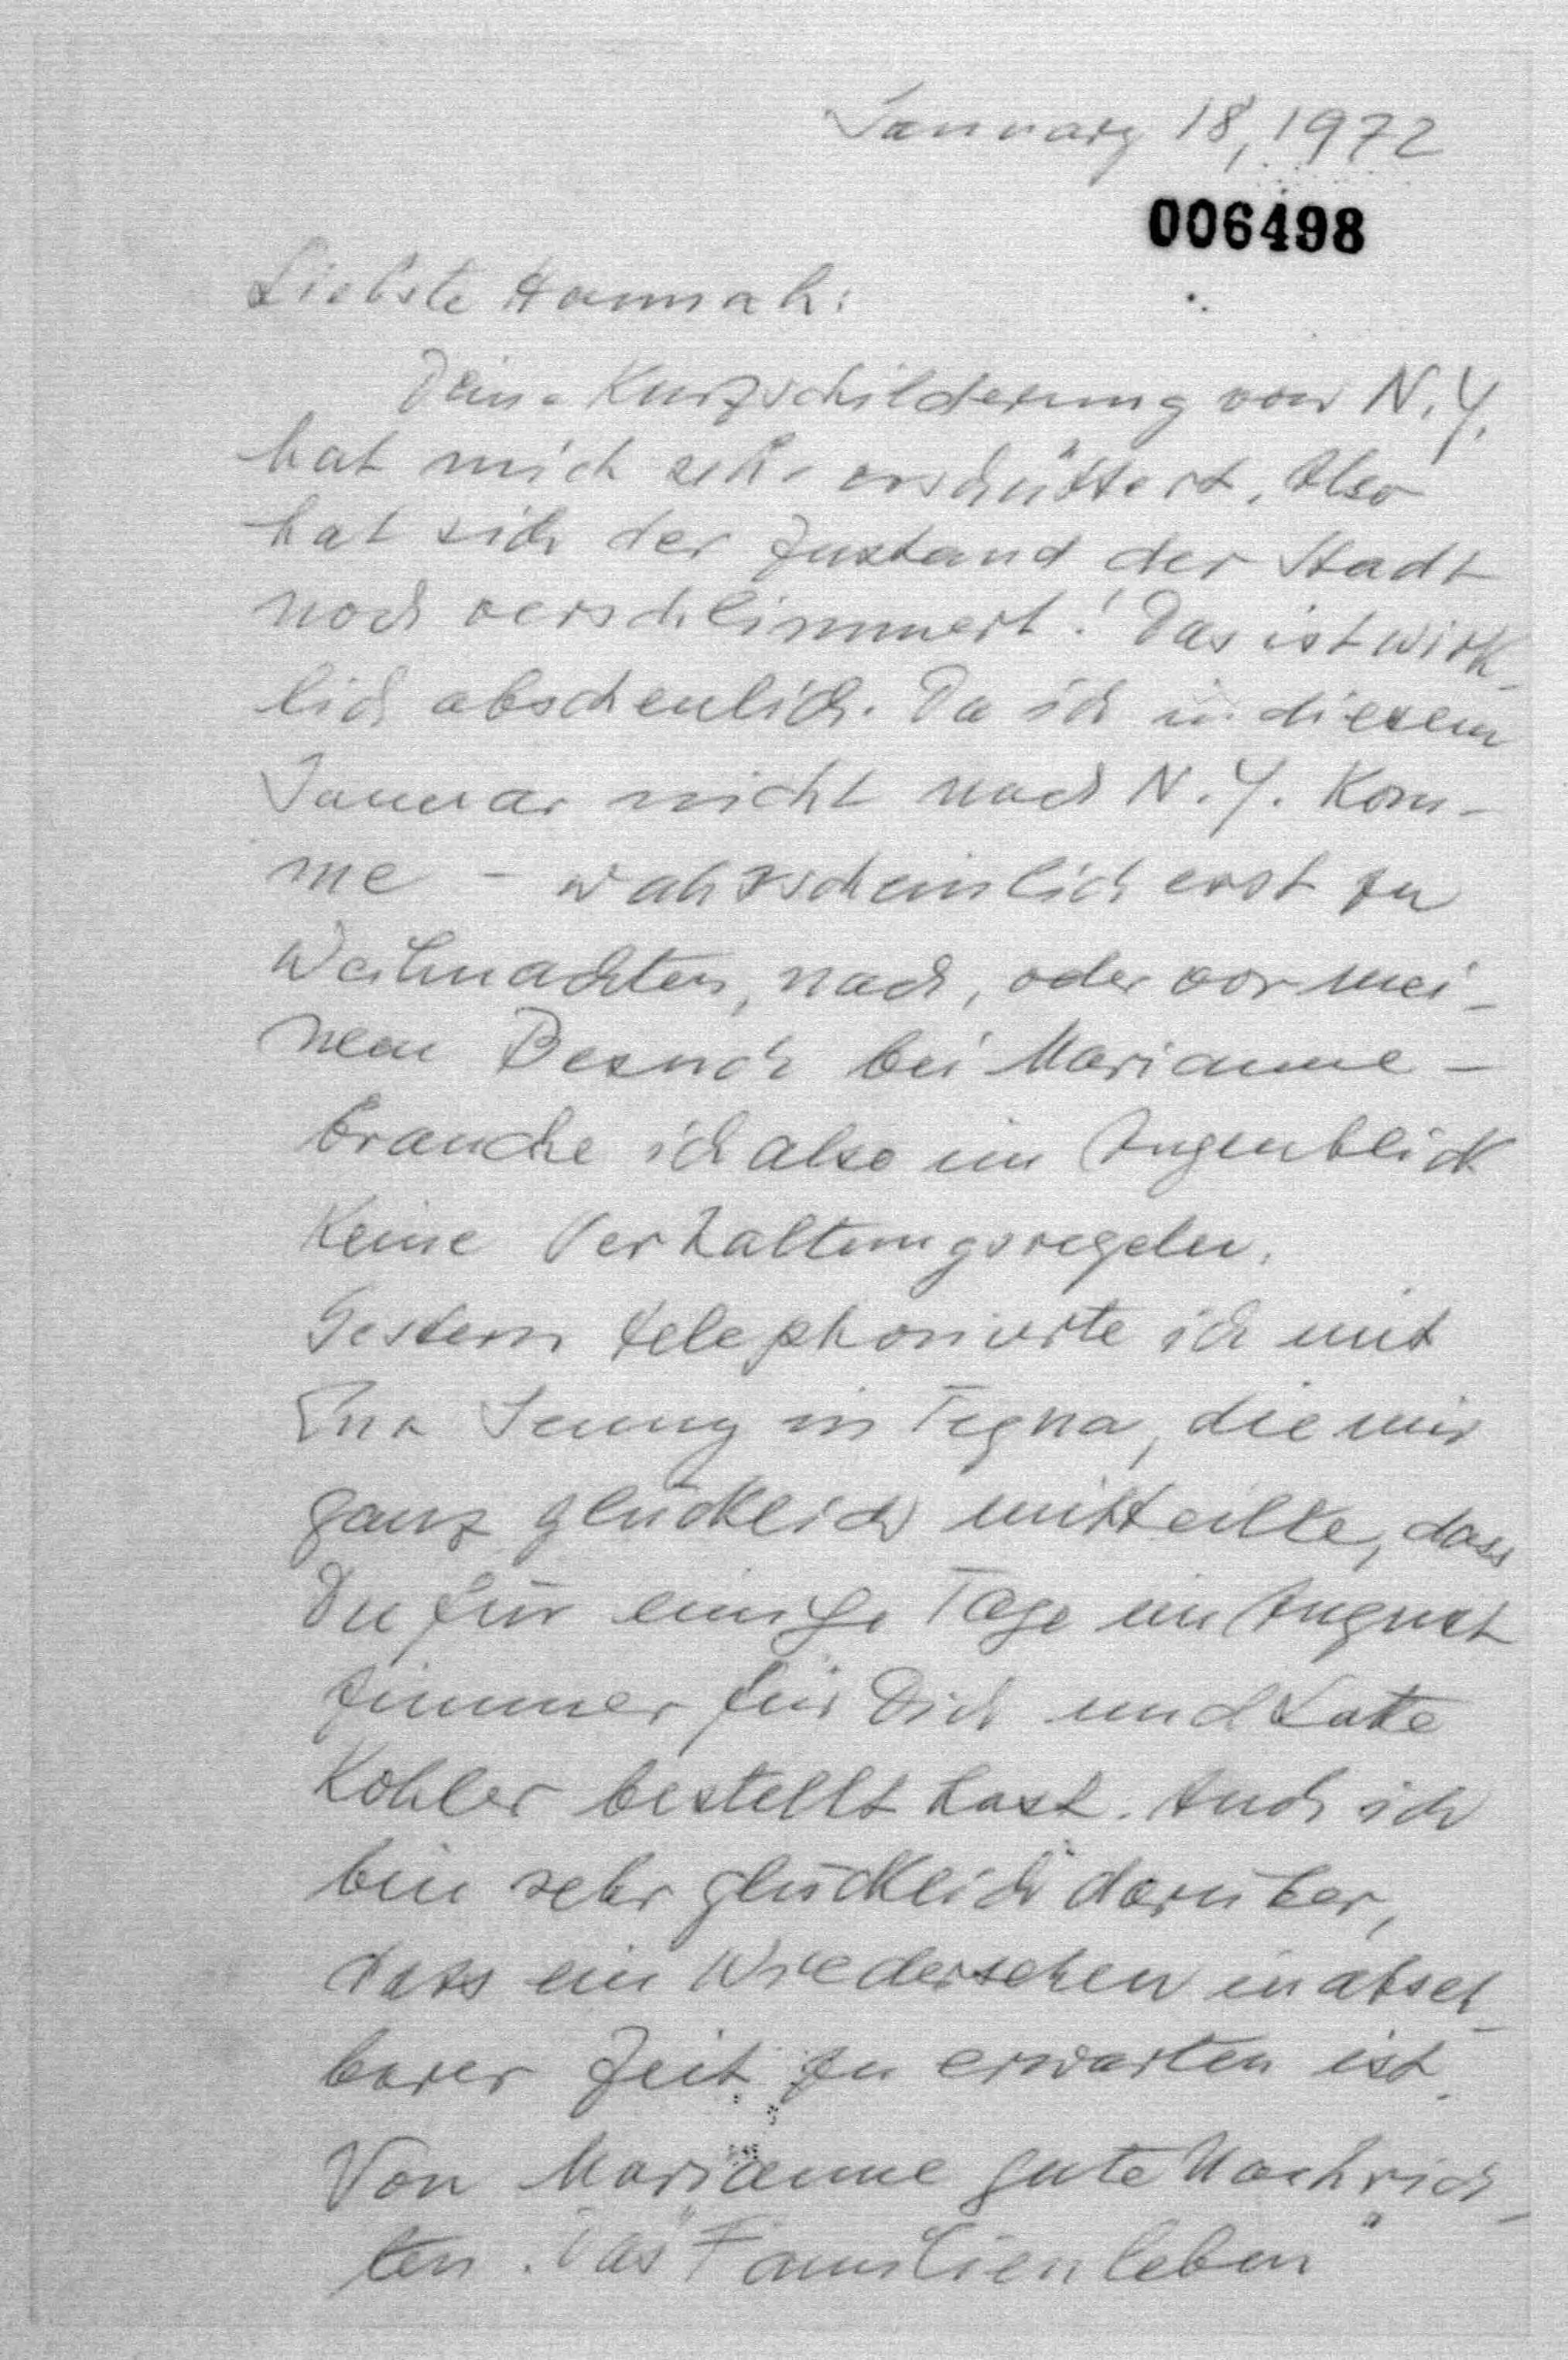 January 18, 1972
006498
Liebste Hannah:
Deine Kurzschilderung von N.Y.
hat mich sehr erschüttert. Also
hat sich der Zustand der Stadt
noch verschlimmert! Das ist wirk-
lich abscheulich. Da ich in diesem
Januar nicht nach N.Y. kom-
me - wahrscheinlich erst zu
Weihnachten, nach, oder vor mei-
nem Besuch bei Marianne -
brauche ich also im Augenblick
keine Verhaltungsregeln.
Gestern telephonierte ich mit
Jenny in Tegna, die mir
ganz glücklich mitteilte, dass
Du für einige Tage im August
Zimmer für Dich und Lotte
Köhler bestellt hast. Auch ich
bin sehr glücklich darüber,
dass ein Wiedersehen in abseh-
barer Zeit zu erwarten ist.
Von Marianne gute Nachrich-
ten. Das "Familienleben"